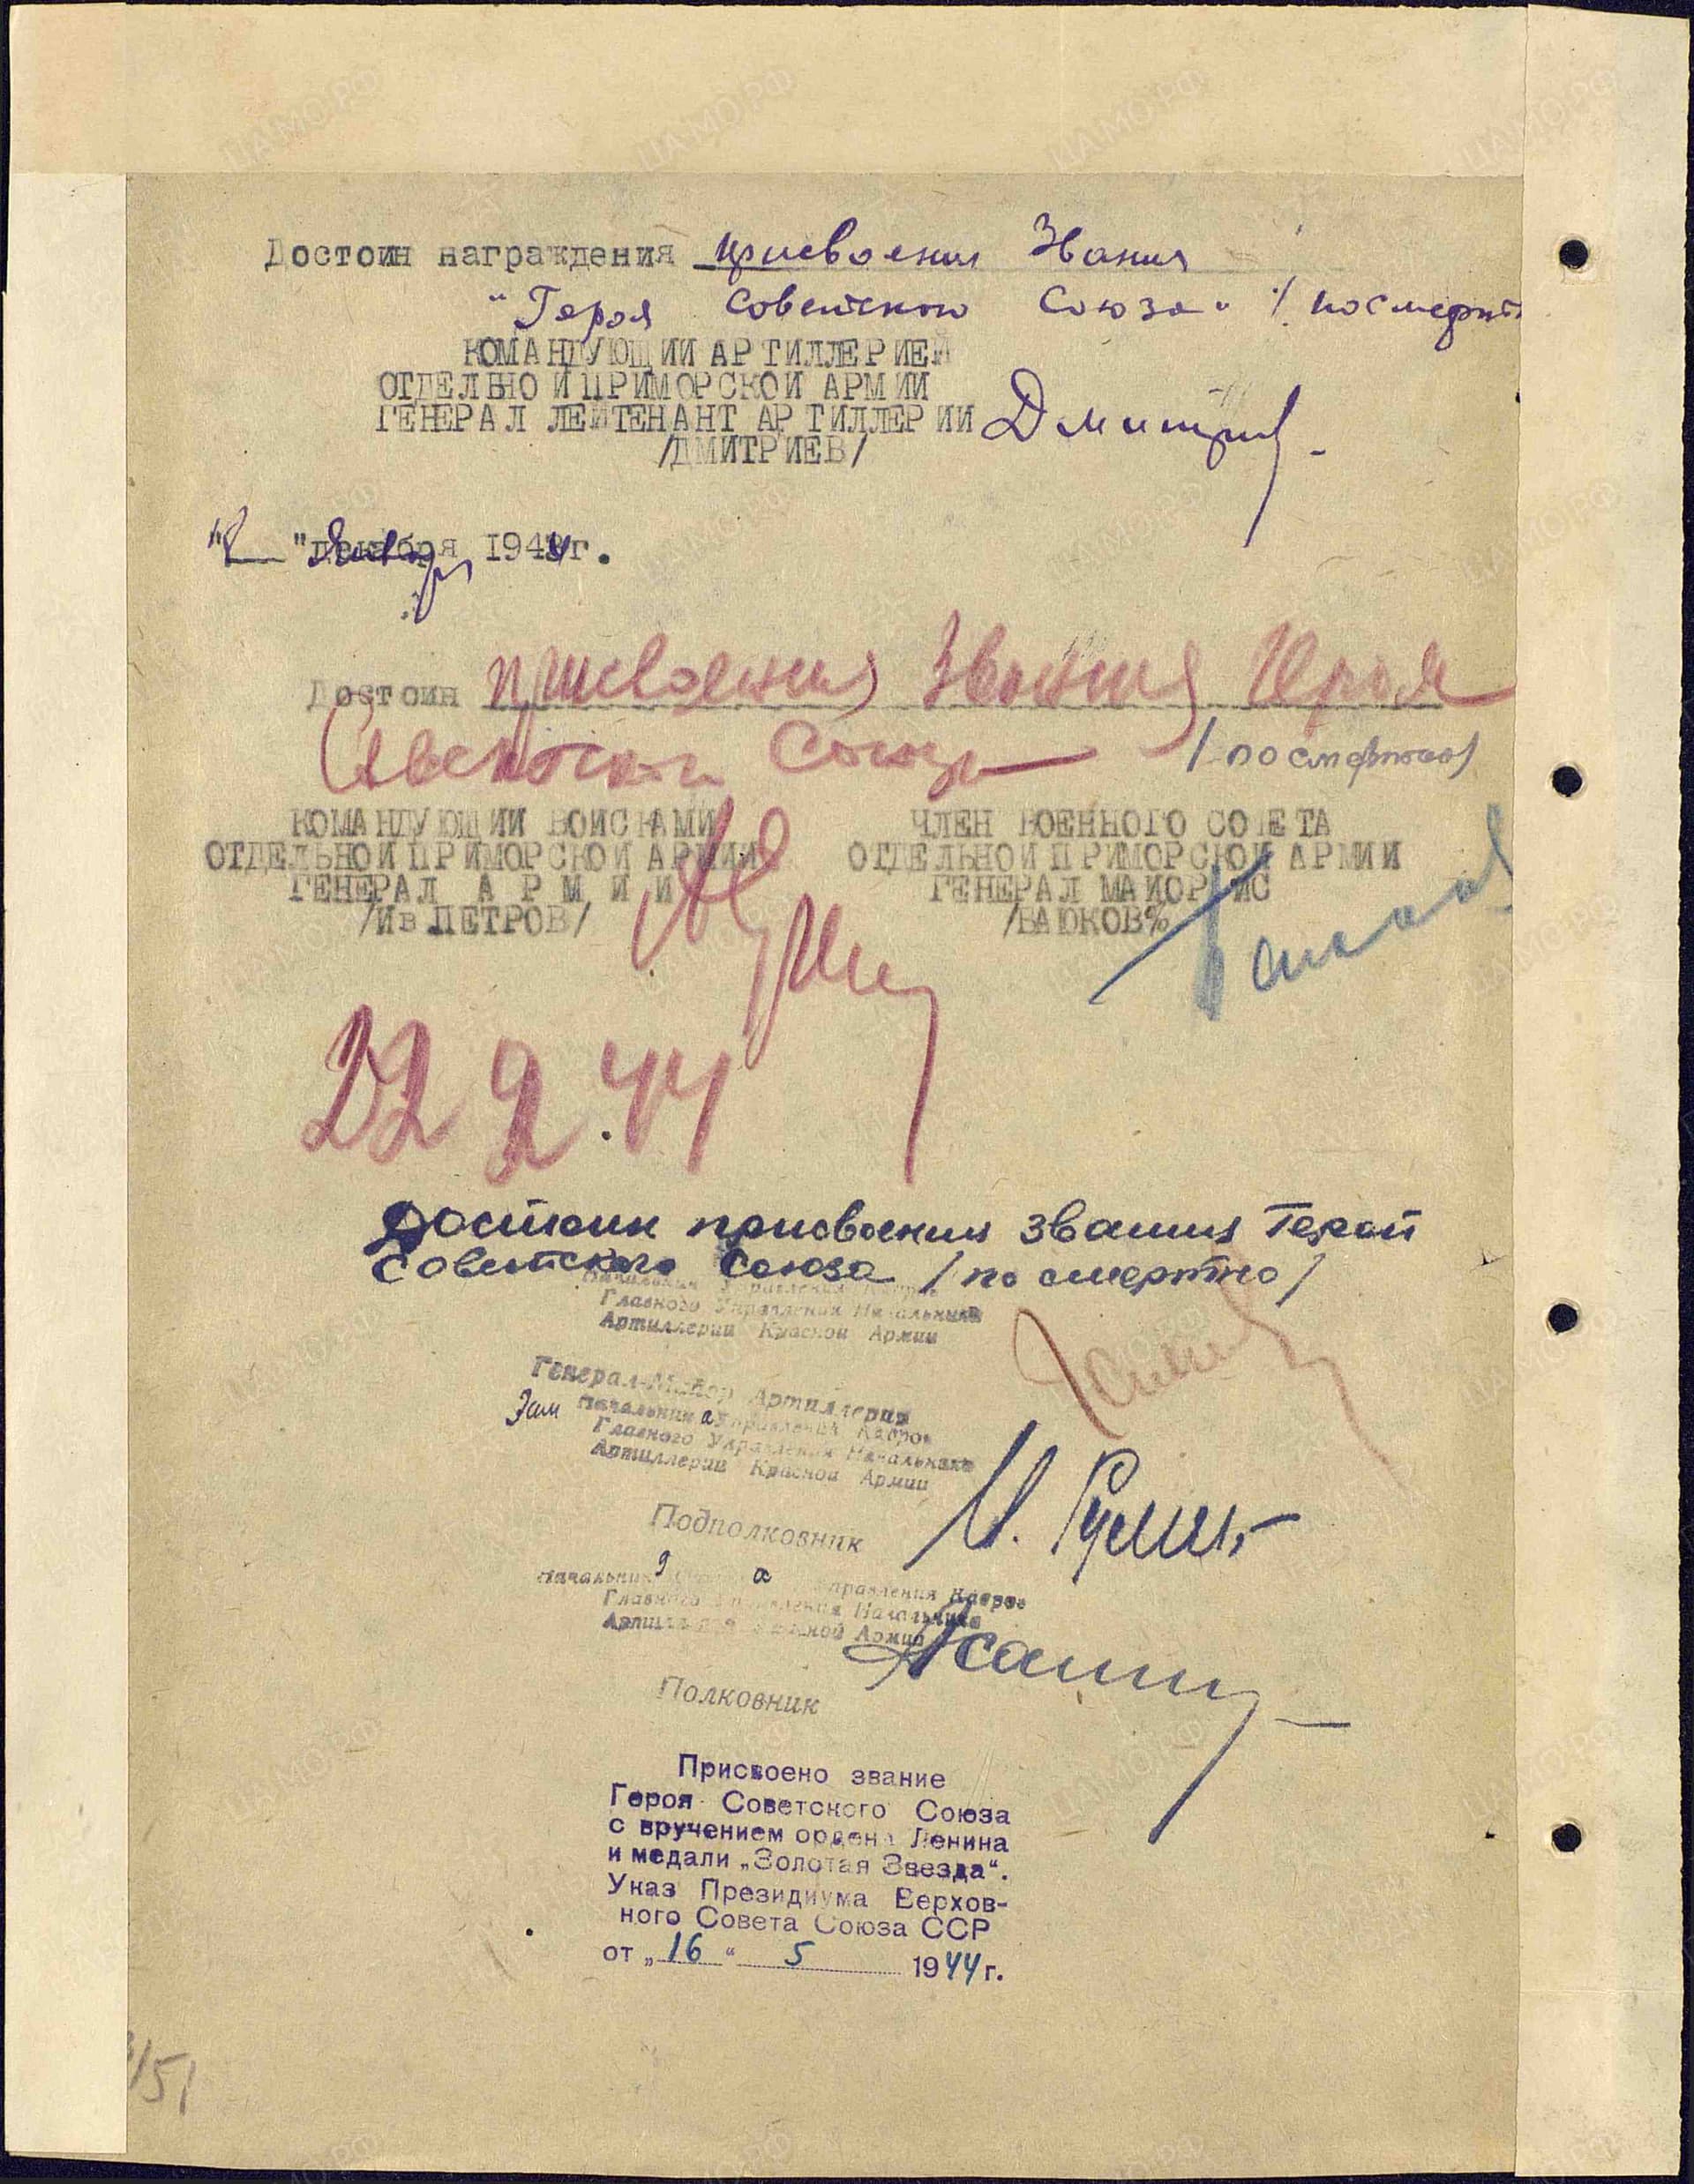 Достоин награждения присвоения Звания
"Героя Советского Союза" /посмертн
КОМАНДУЮЩИЙ АРТИЛЛЕРИЕЙ
ОТДЕЛЬНОЙ ПРИМОРСКОЙ АРМИИ
ГЕНЕРАЛ ЛЕЙТЕНАНТ АРТИЛЛЕРИИ Дмитриев
/ДМИТРИЕВ/
" " января 1944г.
Достоин присвоения Звания Героя
Советского Союза /посмертно/
КОМАНДУЮЩИЙ ВОЙСКАМИ
ОТДЕЛЬНОЙ ПРИМОРСКОЙ АРМИИ
ГЕНЕРАЛ АРМИИ
/Ив ПЕТРОВ/
ЧЛЕН ВОЕННОГО СОВЕТА
ОТДЕЛЬНОЙ ПРИМОРСКОЙ АРМИИ
ГЕНЕРАЛ МАЙОР ИС
/БАЮКОВ%
22 2.44
Достоин присвоения звания Герой
Советского Союза /посмертно/
Начальник Управления Кадров
Главного Управления Начальника
Артиллерии Красной Армии
Генерал-Майор Артиллерии
Зам Начальника Управления Кадров
Главного Управления Начальника
Артиллерии Красной Армии
Подполковник
Начальник Управления Кадров
Главного Управления Начальника
Артиллерии Красной Армии
Полковник
Присвоено звание
Героя Советского Союза
с вручением ордена Ленина
и медали „Золотая Звезда“.
Указ Президиума Верхов-
ного Совета Союза ССР
от „16“ 5 1944г.
/51